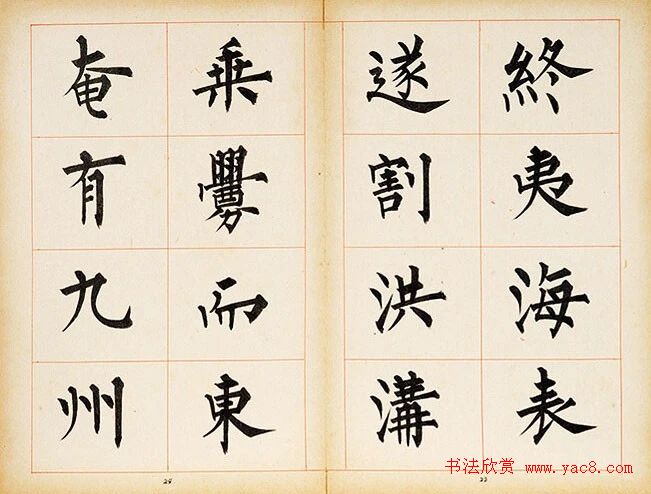 終夷海表
遂割洪溝
乗釁而東
奄有九州
24
书法欣赏 www.yac8.com